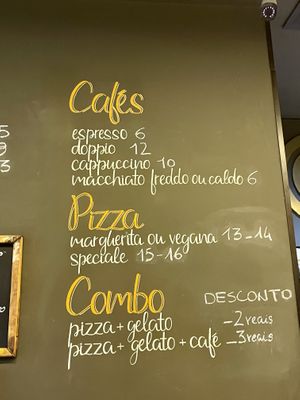 Cafés
5
espresso 6
9
doppio 12
3
cappuccino 10
macchiato freddo ou caldo 6
Pizza
margherita ou vegana 13-14
speciale 15-16
Combo DESCONTO
pizza + gelato -2 reais
pizza + gelato + café -3 reais